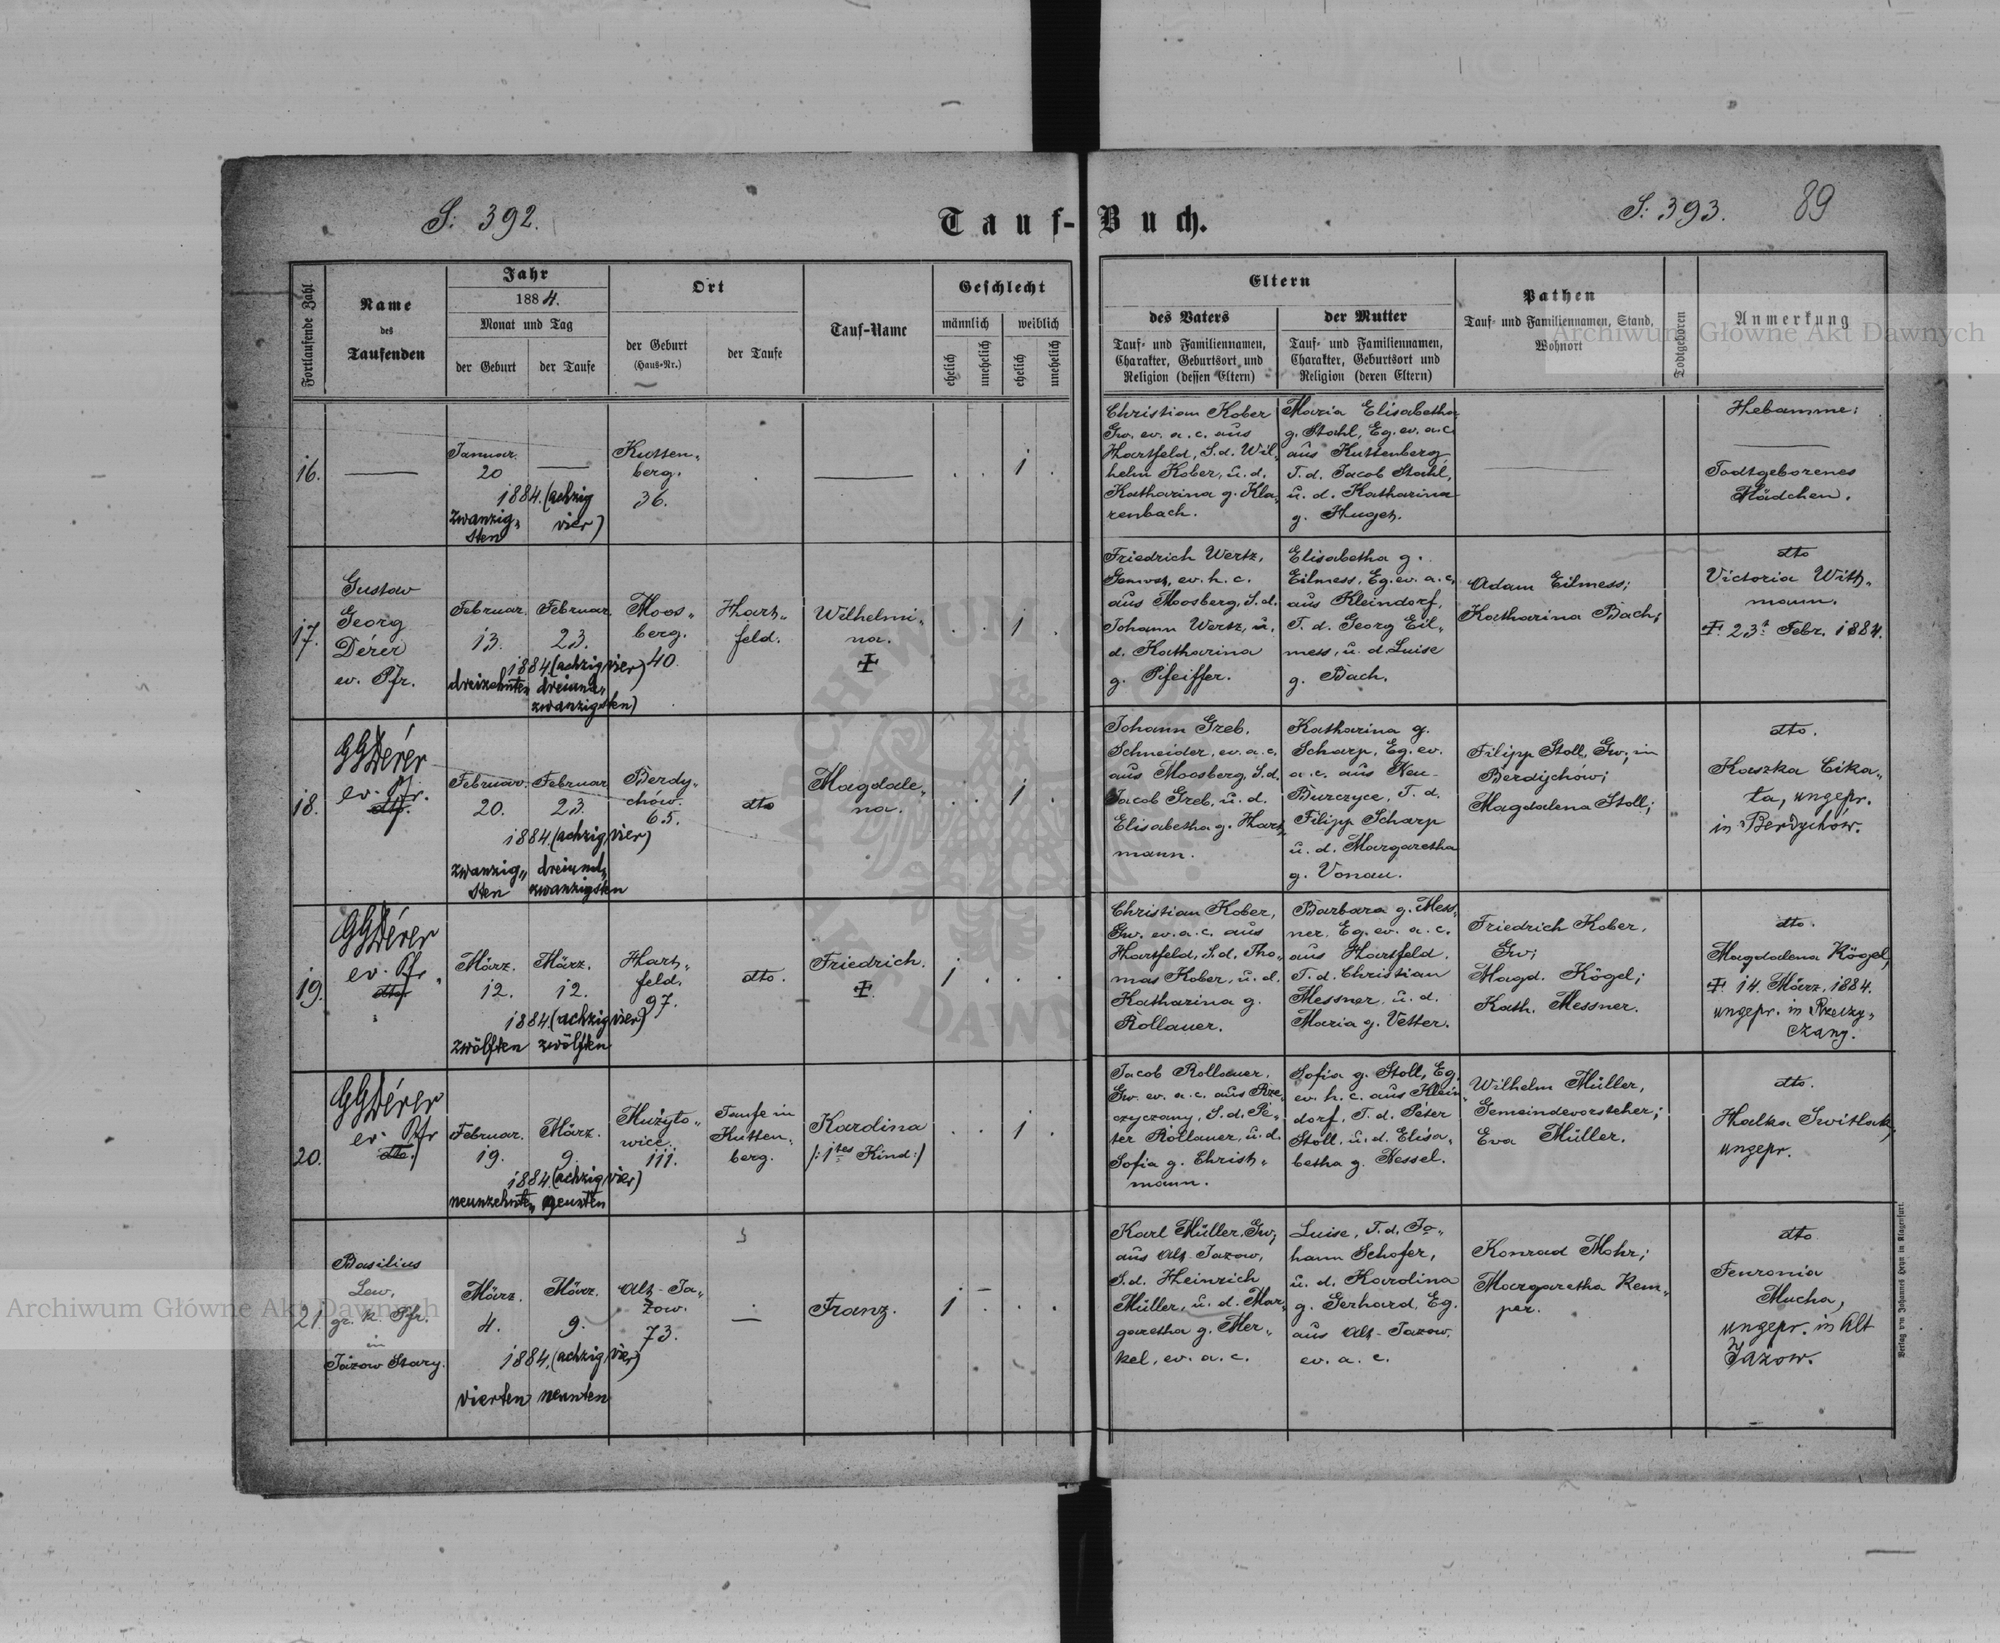 S: 392.
Tauf-Buch.
S: 393.
89
Fortlaufende Zahl
Name
des
Taufenden
Jahr
1884.
Monat und Tag
der Geburt
der Taufe
Ort
der Geburt
(Haus-Nr.)
der Taufe
Tauf-Name
Geschlecht
männlich
weiblich
ehelich
unehelich
ehelich
unehelich
Eltern
des Vaters
Tauf- und Familiennamen,
Charakter, Geburtsort, und
Religion (dessen Eltern)
der Mutter
Tauf- und Familiennamen,
Charakter, Geburtsort und
Religion (deren Eltern)
Pathen
Tauf- und Familiennamen, Stand,
Wohnort
Todtgeboren
Anmerkung
16.
Januar.
20
1884. (achzig
vier)
zwanzig„
sten
Kutten„
berg.
36.
1
Christian Kober
Gw. ev. a. c. aus
Hartfeld, S. d. Wil„
helm Kober, u. d.
Katharina g. Kla„
renbach.
Maria Elisabetha
g. Stahl, Eg. ev. a. c.
aus Kuttenberg,
T. d. Jacob Stahl,
u. d. Katharina
g. Huget.
Hebamme:
Todtgeborenes
Mädchen.
17.
Gustav
Georg
Dérer
ev. Pfr.
Februar.
13.
Februar.
23.
1884. (achzig vier)
dreizehnten
dreiund„
zwanzigsten)
Moos„
berg.
40.
Hart„
feld.
Wilhelmi„
na.
1
Friedrich Wertz,
ev. h. c.
aus Moosberg, S. d.
Johann Wertz, u.
d. Katharina
g. Pfeiffer.
Elisabetha g.
Eilmess, Eg. ev. a. c.
aus Kleindorf,
T. d. Georg Eil„
mess, u. d. Luise
g. Bach.
Adam Eilmess;
Katharina Bach;
dto
Victoria Witt„
mann.
23t Febr. 1884.
18.
GGDérer
ev. Pfr.
dto.
Februar.
20.
Februar
23.
1884. (achzig vier)
zwanzig„
sten
dreiund„
zwanzigsten
Berdy„
chów.
65.
dto
Magdale„
na.
1
Johann Greb,
Schneider, ev. a. c.
aus Moosberg, S. d.
Jacob Greb, u. d.
Elisabetha g. Hart„
mann.
Katharina g.
Scharp, Eg. ev.
a. c. aus Neu-
Burczyce, T. d.
Filipp Scharp
u. d. Margaretha
g. Vonau.
Filipp Stoll, Gw; in
Berdychów;
Magdalena Stoll;
dto.
Kaszka Cika„
ta, ungepr.
in Berdychów.
19.
GGDérer
ev. Pfr.
dto
März.
12.
März.
12.
1884. (achzig vier)
zwölften
zwölften
Hart„
feld.
97.
dto.
Friedrich.
1
Christian Kober,
Gw. ev. a. c. aus
Hartfeld, S. d. Tho„
mas Kober, u. d.
Katharina g.
Rollauer.
Barbara g. Mess„
ner, Eg. ev. a. c.
aus Hartfeld.
T. d. Christian
Messner, u. d.
Maria g. Vetter.
Friedrich Kober,
Gw;
Magd. Kögel;
Kath. Messner.
dto.
Magdalena Kögel,
14. März, 1884.
ungepr. in Rzeczy„
czany.
20.
GGDérer
ev. Pfr
dto.
Februar.
19.
März.
9.
1884. (achzig vier)
neunzehnten
neunten
Mużyło„
wice.
111.
Taufe in
Kutten„
berg.
Karolina
/:1tes Kind:/
1
Jacob Rollauer,
Gw. ev. a. c. aus Rze„
czyczany, S. d. Pe„
ter Rollauer, u. d.
Sofia g. Christ„
mann.
Sofia g. Stoll, Eg.
ev. h. c. aus Klein„
dorf, T. d. Peter
Stoll, u. d. Elisa„
betha g. Hessel.
Wilhelm Müller,
Gemeindevorsteher;
Eva Müller.
dto.
Halka Switlak,
ungepr.
21.
Basilius
Lew,
gr. k. Pfr.
in
Jazow Stary.
März.
4.
März.
9.
1884. (achzig vier)
vierten
neunten
Alt-Ja„
zow.
73.
Franz.
1
Karl Müller, Gw;
aus Alt-Jazow,
S. d. Heinrich
Müller, u. d. Mar„
garetha g. Mer„
kel, ev. a. c.
Luise, T. d. Jo„
hann Schofer,
u. d. Karolina
g. Gerhard, Eg.
aus Alt-Jazow,
ev. a. c.
Konrad Mohr;
Margaretha Kem„
per.
dto
Fenronia
Mucha,
ungepr. in Alt
Jazow.
Verlag von Johannes Heyn in Klagenfurt.
Archiwum Główne Akt Dawnych
Archiwum Główne Akt Dawnych